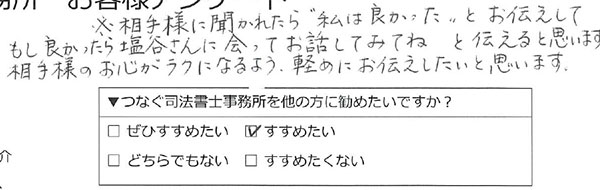 お客様アンケート
※相手様に聞かれたら"私は良かった"とお伝えして
もし良かったら塩谷さんに会ってお話してみてね と伝えると思います
相手様のお心がラクになるよう、軽めにお伝えしたいと思います。
▼つなぐ司法書士事務所を他の方に勧めたいですか?
□ ぜひすすめたい ☑ すすめたい
□ どちらでもない □ すすめたくない
介